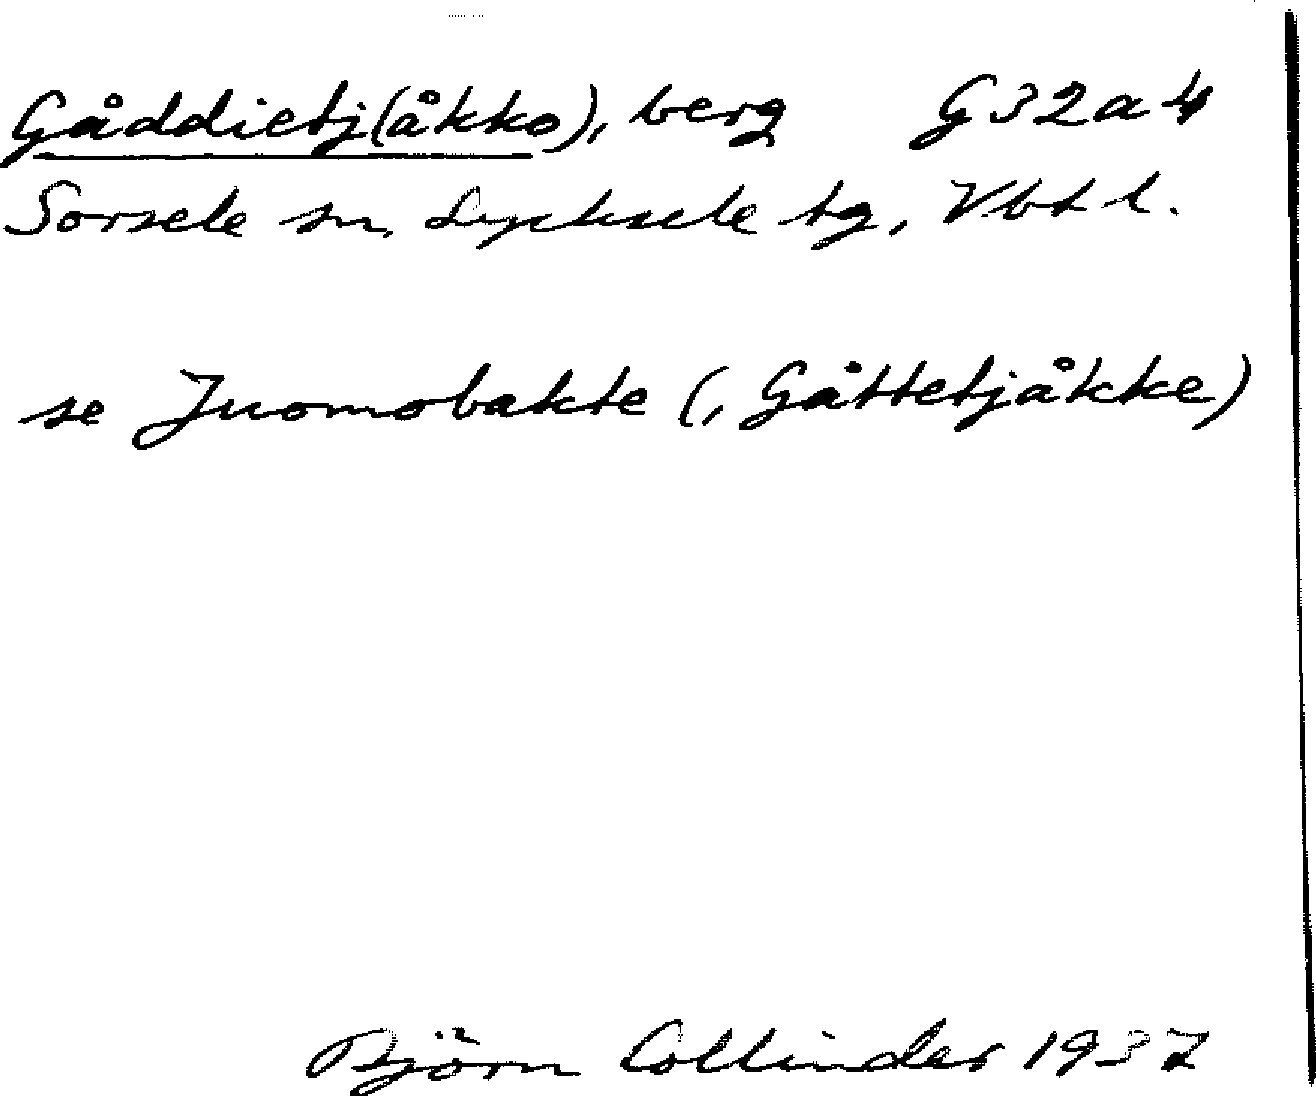 Gåddietj(åkko), berg G32a4
Sorsele sn, Lycksele tg, Vbt l.
se Juomobakte (, Gåttetjåkke)
Björn Collinder 1937